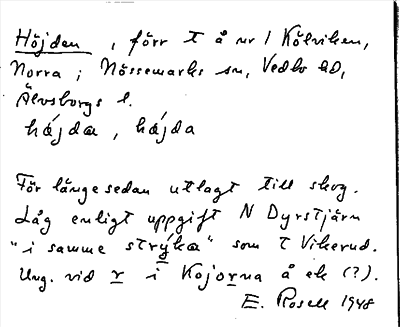 Höjden, förr t å nr 1 Kölviken,
Norra; Nössemarks sn, Vedbo hd,
Älvsborgs l.
hä́jda, hä́jda
För länge sedan utlagt till skog.
Låg enligt uppgift N Dyrstjärn
"i samme strýka" som t Vikerud.
Ung. vid r i Kojorna å ek (?).
E. Rosell 1948